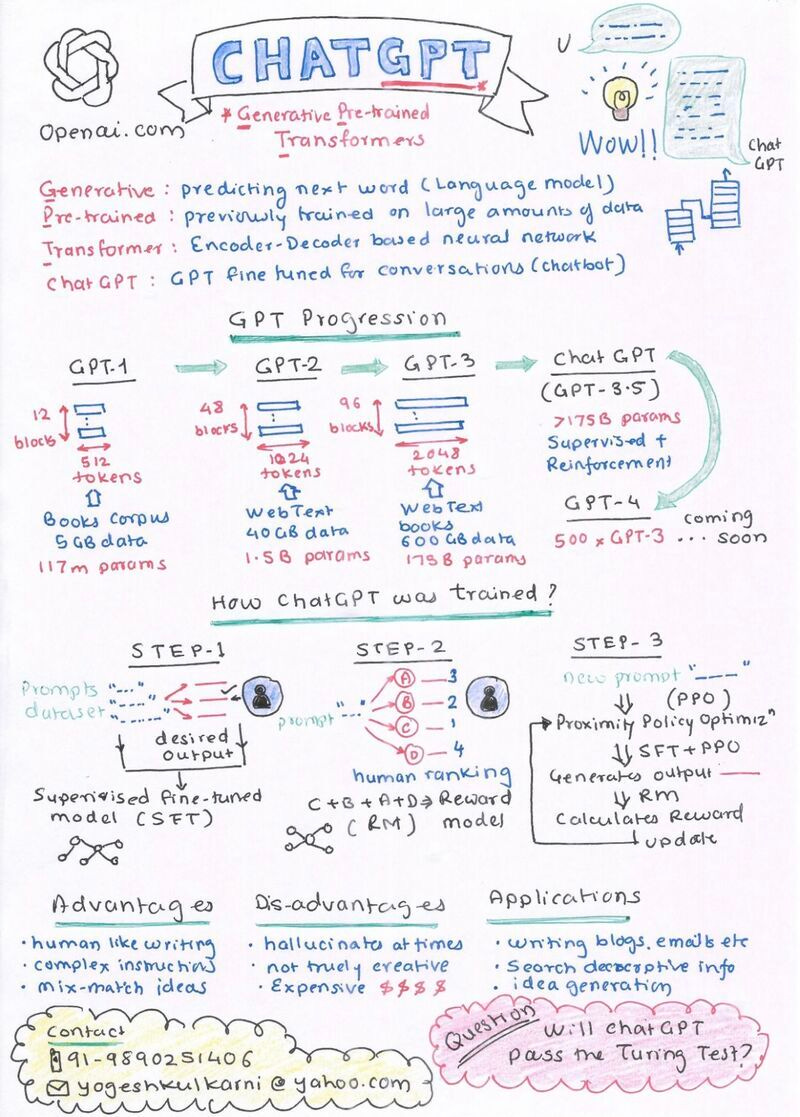 CHATGPT
U
openai.com
* Generative Pre-trained
Transformers
WOW!!
Chat
GPT
Generative : predicting next word (Language model)
Pre-trained : previously trained on large amounts of data
Transformer : Encoder-Decoder based neural network
ChatGPT : GPT fine tuned for conversations (chatbot)
GPT Progression
GPT-1
12
blocks
512
tokens
Books Corpus
5GB data
117m params
GPT-2
48
blocks
1024
tokens
WebText
40GB data
1.5B params
GPT-3
96
blocks
2048
tokens
WebText
books
600GB data
175B params
Chat GPT
(GPT-3.5)
>175B params
Supervised +
Reinforcement
GPT-4
500 x GPT-3 ... coming soon
How ChatGPT was trained?
STEP-1
Prompts
dataset
desired
output
Superivised fine-tuned
model (SFT)
STEP-2
prompt
A 3
B 2
C 1
D 4
human ranking
C+B+A+D ⇒ Reward
(RM) model
STEP-3
new prompt
(PPO)
Proximity Policy Optimizn
SFT+PPO
Generates output
RM
Calculates Reward
update
Advantages
• human like writing
• complex instructions
• mix-match ideas
Dis-advantages
• hallucinates at times
• not truely creative
• Expensive $$$$
Applications
• writing blogs, emails etc
• Search descriptive info
• idea generation
Contact
91-9890251406
yogeshkulkarni@yahoo.com
Question
Will chatGPT
pass the Turing Test?